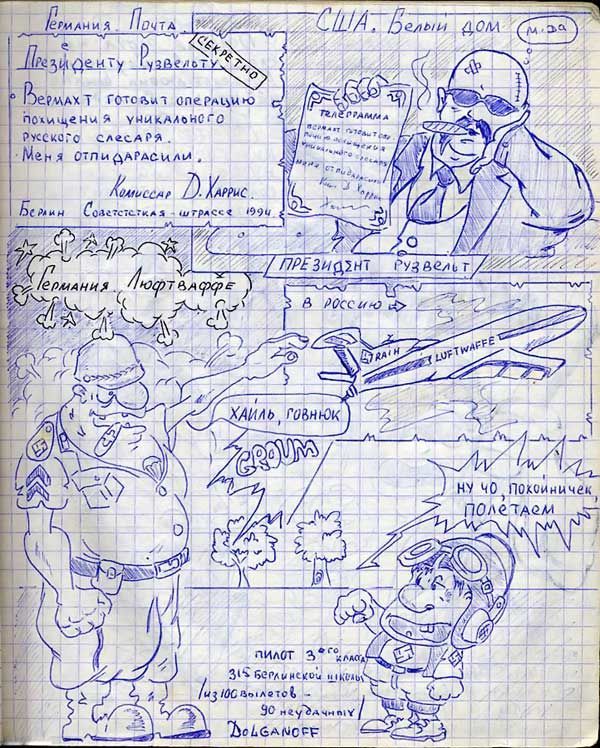 Германия. Почта
Президенту Рузвельту.
СЕКРЕТНО
Вермахт готовит операцию
похищения уникального
русского слесаря.
Меня отпидарасили.
Комиссар Д. Харрис.
Берлин Советстсткая - штрассе 1994.
США. Белый дом
ТЕЛЕГРАММА
Вермахт готовит опе
похищения
уникального слесаря
Меня отпидарасили
Ком Д Харрис
ПРЕЗИДЕНТ РУЗВЕЛЬТ
Германия. Люфтваффе
В РОССИЮ
RAIH
LUFTWAFFE
ХАЙЛЬ, ГОВНЮК
GROUM
НУ ЧО, ПОКОЙНИЧЕК,
ПОЛЕТАЕМ
ПИЛОТ 3его класса
315 Берлинской школы
/из 100 вылетов -
90 неудачных/
DOLGANOFF